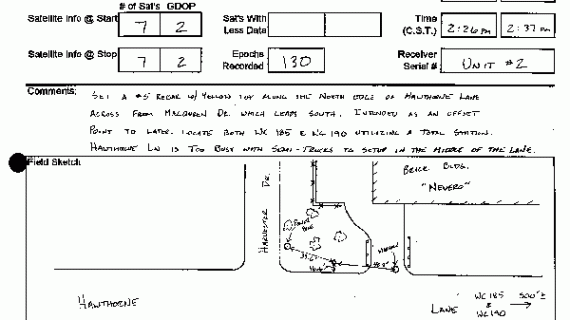 # of Sat's GDOP
Satellite Info @ Start 7 2 Sat's With Less Data Time (C.S.T.) 2:26 PM 2:37 PM
Satellite Info @ Stop 7 2 Epochs Recorded 130 Receiver Serial # UNIT #2
Comments: SET A #5 REBAR W/ YELLOW TOP ALONG THE NORTH EDGE OF HAWTHORNE LANE
ACROSS FROM DR. WHICH LEADS SOUTH. INTENDED AS AN OFFSET
POINT TO LATER LOCATE BOTH WC 185 & WC 190 UTILIZING A TOTAL STATION.
HAWTHORNE LN IS TOO BUSY WITH SEMI-TRUCKS TO SETUP IN THE MIDDLE OF THE LANE.
Field Sketch
BRICK BLDG.
HARVESTER DR.
POWER
HAWTHORNE LANE
WC 185 500'±
& WC 190